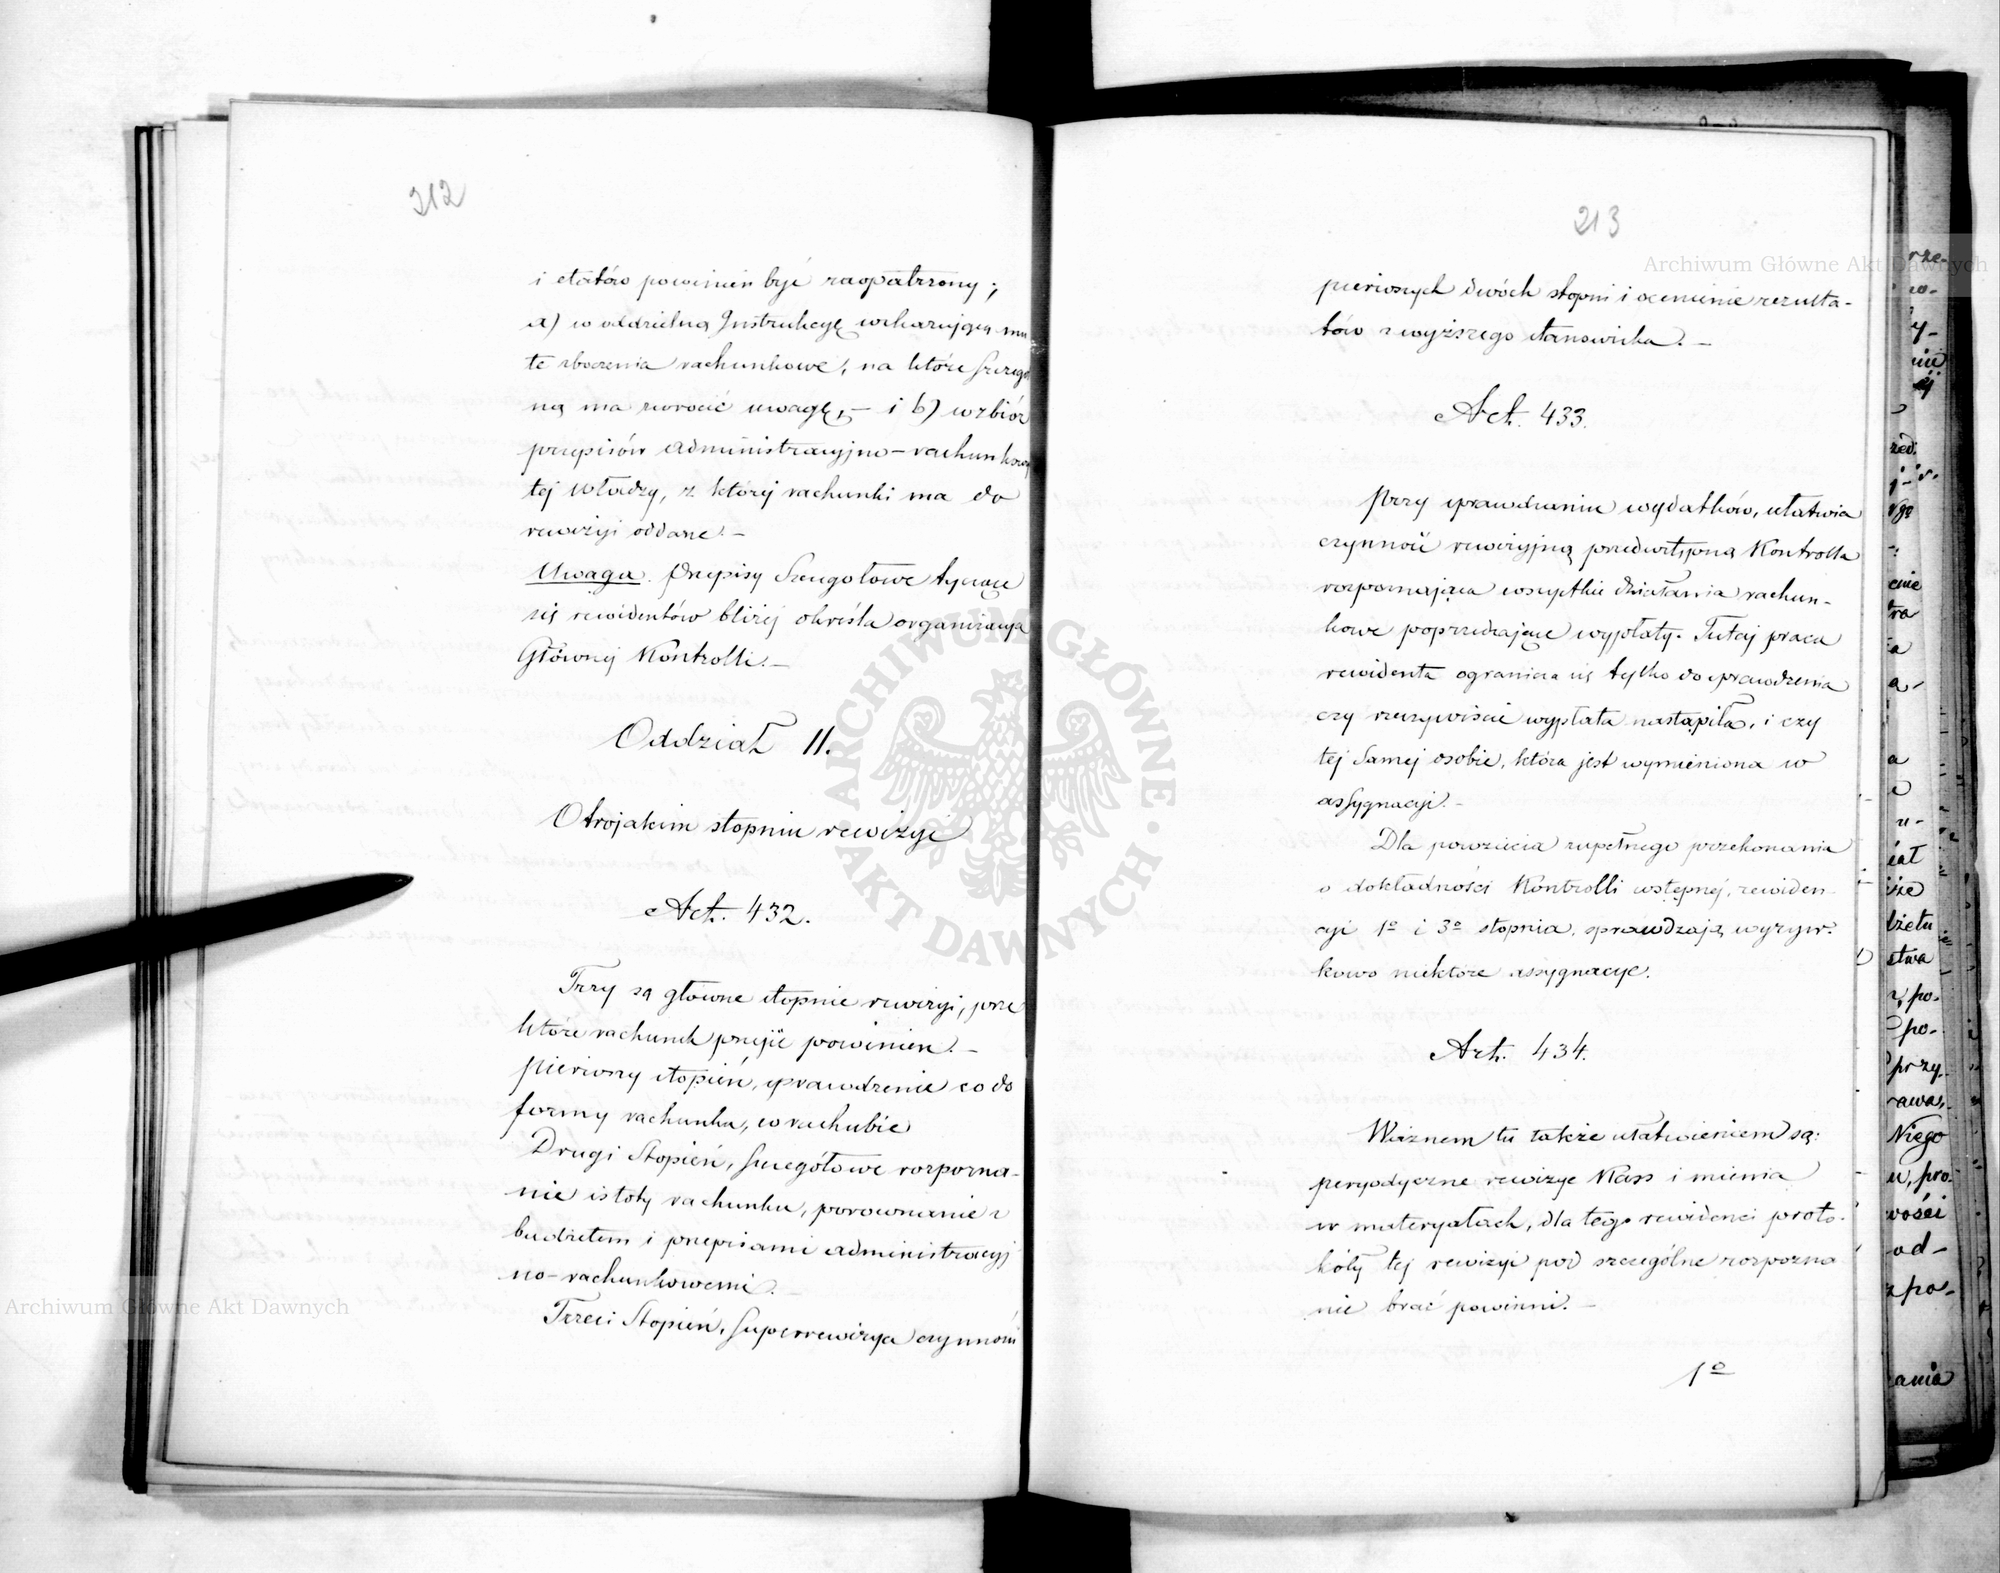 212
i etatów powinien być zaopatrzony;
a) w oddzielną Instrukcyę wskazującą mu
te zboczenia rachunkowe, na które szczegó
ną ma zwrócić uwagę, – i b) w zbiór
przepisów administracyjno – rachunkowy
tej władzy, z której rachunki ma do
rewizyi oddane. –
Uwaga. Przepisy Szczegółowe tyczące
się rewidentów bliżej określa organizacya
Głównej Kontrolli. –
Oddział II.
O trojakim stopniu rewizyi
Art. 432.
Trzy są główne stopnie rewizyi, prze
które rachunek przejść powinien. –
Pierwszy stopień, sprawdzenie co do
formy rachunku, w rachubie
Drugi Stopień, szczegółowe rozpozna-
nie istoty rachunku, porównanie z
budżetem i przepisami administracyj
no – rachunkowemi. –
Trzeci Stopień, Superrewizya czynności
213
pierwszych dwóch stopni i ocenienie rezulta-
tów z wyższego stanowiska. –
Art. 433.
Przy sprawdzaniu wydatków, ułatwia
czynność rewizyjną przedwstępną Kontrolla
rozpoznająca wszystkie działania rachun-
kowe poprzedzające wypłaty. Tutaj praca
rewidenta ogranicza się tylko do sprawdzenia
czy rzeczywiście wypłata nastąpiła, i czy
tej samej osobie, która jest wymieniona w
assygnacyi. –
Dla powzięcia zupełnego przekonania
o dokładności Kontrolli wstępnej, rewiden-
cyi 1º i 3º stopnia, sprawdzają wyryw-
kowo niektóre assygnacye.
Art. 434.
Ważnem tu także ułatwieniem są:
peryodyczne rewizye Kass i mienia
w materyałach, dla tego rewidenci proto-
kóły tej rewizyi pod szczególne rozpozna
nie brać powinni. –
1º
Archiwum Główne Akt Dawnych
Archiwum Główne Akt Dawnych
ARCHIWUM GŁÓWNE · AKT DAWNYCH ·